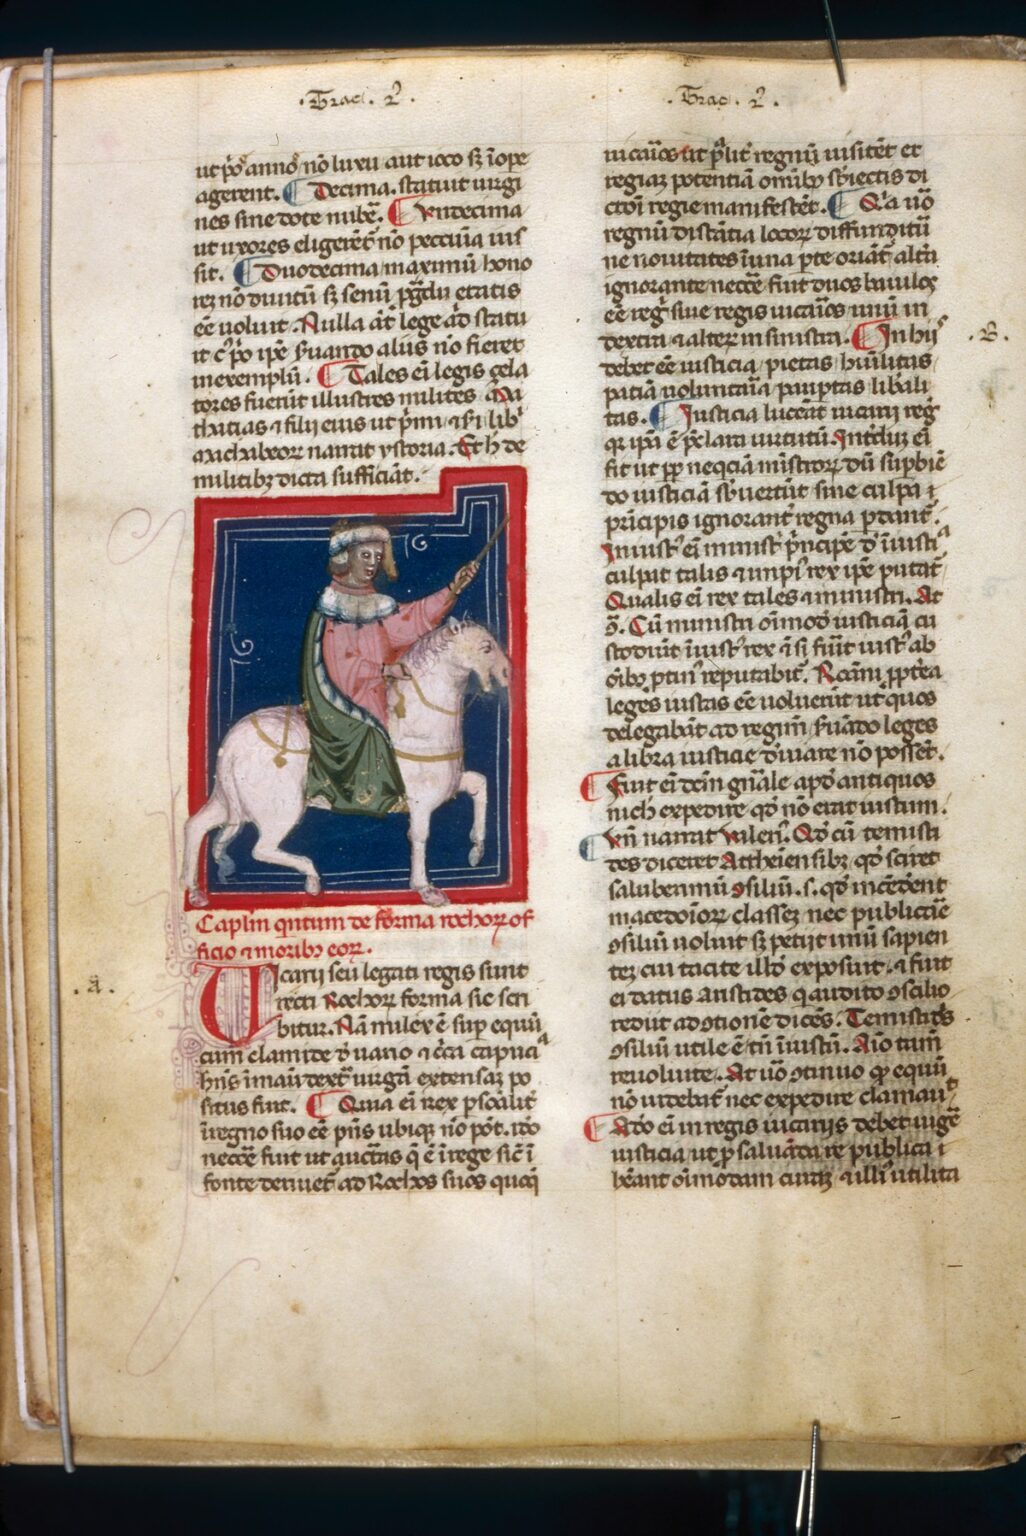 .Trac. 2.
ut pͦo annoꝝ nō luxu aut ioco sꝫ īope
agerent. ¶ Decima. statuit uirgi
nes sine dote nubẽ. ¶ Vndecima
ut uxores eligerẽt nō peccūia ius
sit. ¶ Duodecima maximū hono
rem nō diuitū sꝫ senū etatis
eẽ uoluit. Nulla lege statu
it ipẽ aliis nō fieret
in exemplū. ¶ Tales eī legis çela
tores fuerūt illustres milites Ma
thatias ⁊ filij eius ut pͥmi lib
machabeoꝝ narrat ystoria. Et h̄ de
militibꝫ dicta sufficiāt.
Caplm̄ qͥntum de forma rochoꝝ of
ficio ⁊ moribꝫ eoꝝ.
Vicarij seu legati regis sunt
Rochoꝝ forma sic scri
bitur. Nā miles ē sup equū
cum clamide ⁊ capucia
hn̄s ī manu dextͣ uirgā extensaꝫ po
situs fuit. ¶ Quia eī rex ꝑsonalit͛
ī regno suo eẽ p̄ns ubiqꝫ nō pōt. ido
necc̄e fuit ut auctͣas q̄ ē ī rege sic̄ ī
fonte deriuet͛ ad Rochos suos quasi
.A.
.Trac. 2.
uicaͥos ut regnū uisitẽt et
regiaꝫ potentiā oīnibꝫ sb̄iectis di
ctoī regie manifestẽt. ¶ Qͥa uͦo
regnū distātia locoꝝ diffunditͥ
ne nouitates ī una ꝑte oriāt͛ altͣ
ignorante necc̄e fuit duos baiulos
eẽ reg̃ siue regis uicaͥos unū in
dextͣa ⁊ alteꝝ in sinistra. ¶ In hijs
debet eẽ iusticia, pietas, huīlitas,
patīa uoluntāia pauꝑtas libali
tas. ¶ Iusticia luceāt uicarij reg̃
qꝛ ipā ē p̄clara uirtutū. eī
fit ut pp̄ neqͥciā mīstroꝝ dū supbie
do iusticiā sb̄uertūt sine culpa ⁊
prīcipis ignorant͛ regna ꝑdant͛.
Iniust͛ eī minist͛ pͥncipẽ īiusti
culpat talis ⁊ rex ipẽ putat͛
Qualis eī rex tales ⁊ ministri. At
Cū ministri oīmod̄ iusticiā cu
stodiūt īiust͛ rex ⁊ si fuīt iust͛ ab
oībꝫ reputabit͛. Romāi ꝓpt͛ea
leges iustas eẽ uoluerūt ut quos
delegabāt ad regimē͛ s̄uādo leges
a libra iusticie deuiare nō possẽt.
¶ Fuit eī gn̄ale apd̄ antiquos
nich̄ expedire qd̄ nō erat iustum.
¶ Vn̄ narrat Valeri͛. Qd̄ cū temisti
des diceret Attheiensibꝫ qd̄ sciret
saluberimū ꝯsiliū .s. qd̄ incẽderent
macedoīoꝝ classeꝫ nec publicāe
ꝯsiliū uoluit sꝫ petijt unū sapien
teꝫ cui tacite illd̄ exposuit. ⁊ fuit
ei datus aristides q̄ audito ꝯsilio
redijt ad ꝯtionē dicẽs. Temistides
ꝯsiliū utile ē tn̄ īiustū. Aīo tam̄
reuoluite. At uͦo ꝯtinuo qꝫ equū
nō uidebat͛ nec expedire clamauͭ
¶ Adō eī in regis uicarijs debet uigẽ
iusticia, ut ꝑ saluādā re publica ⁊
hēant oīmodam curaꝫ ⁊ utilita
.B.